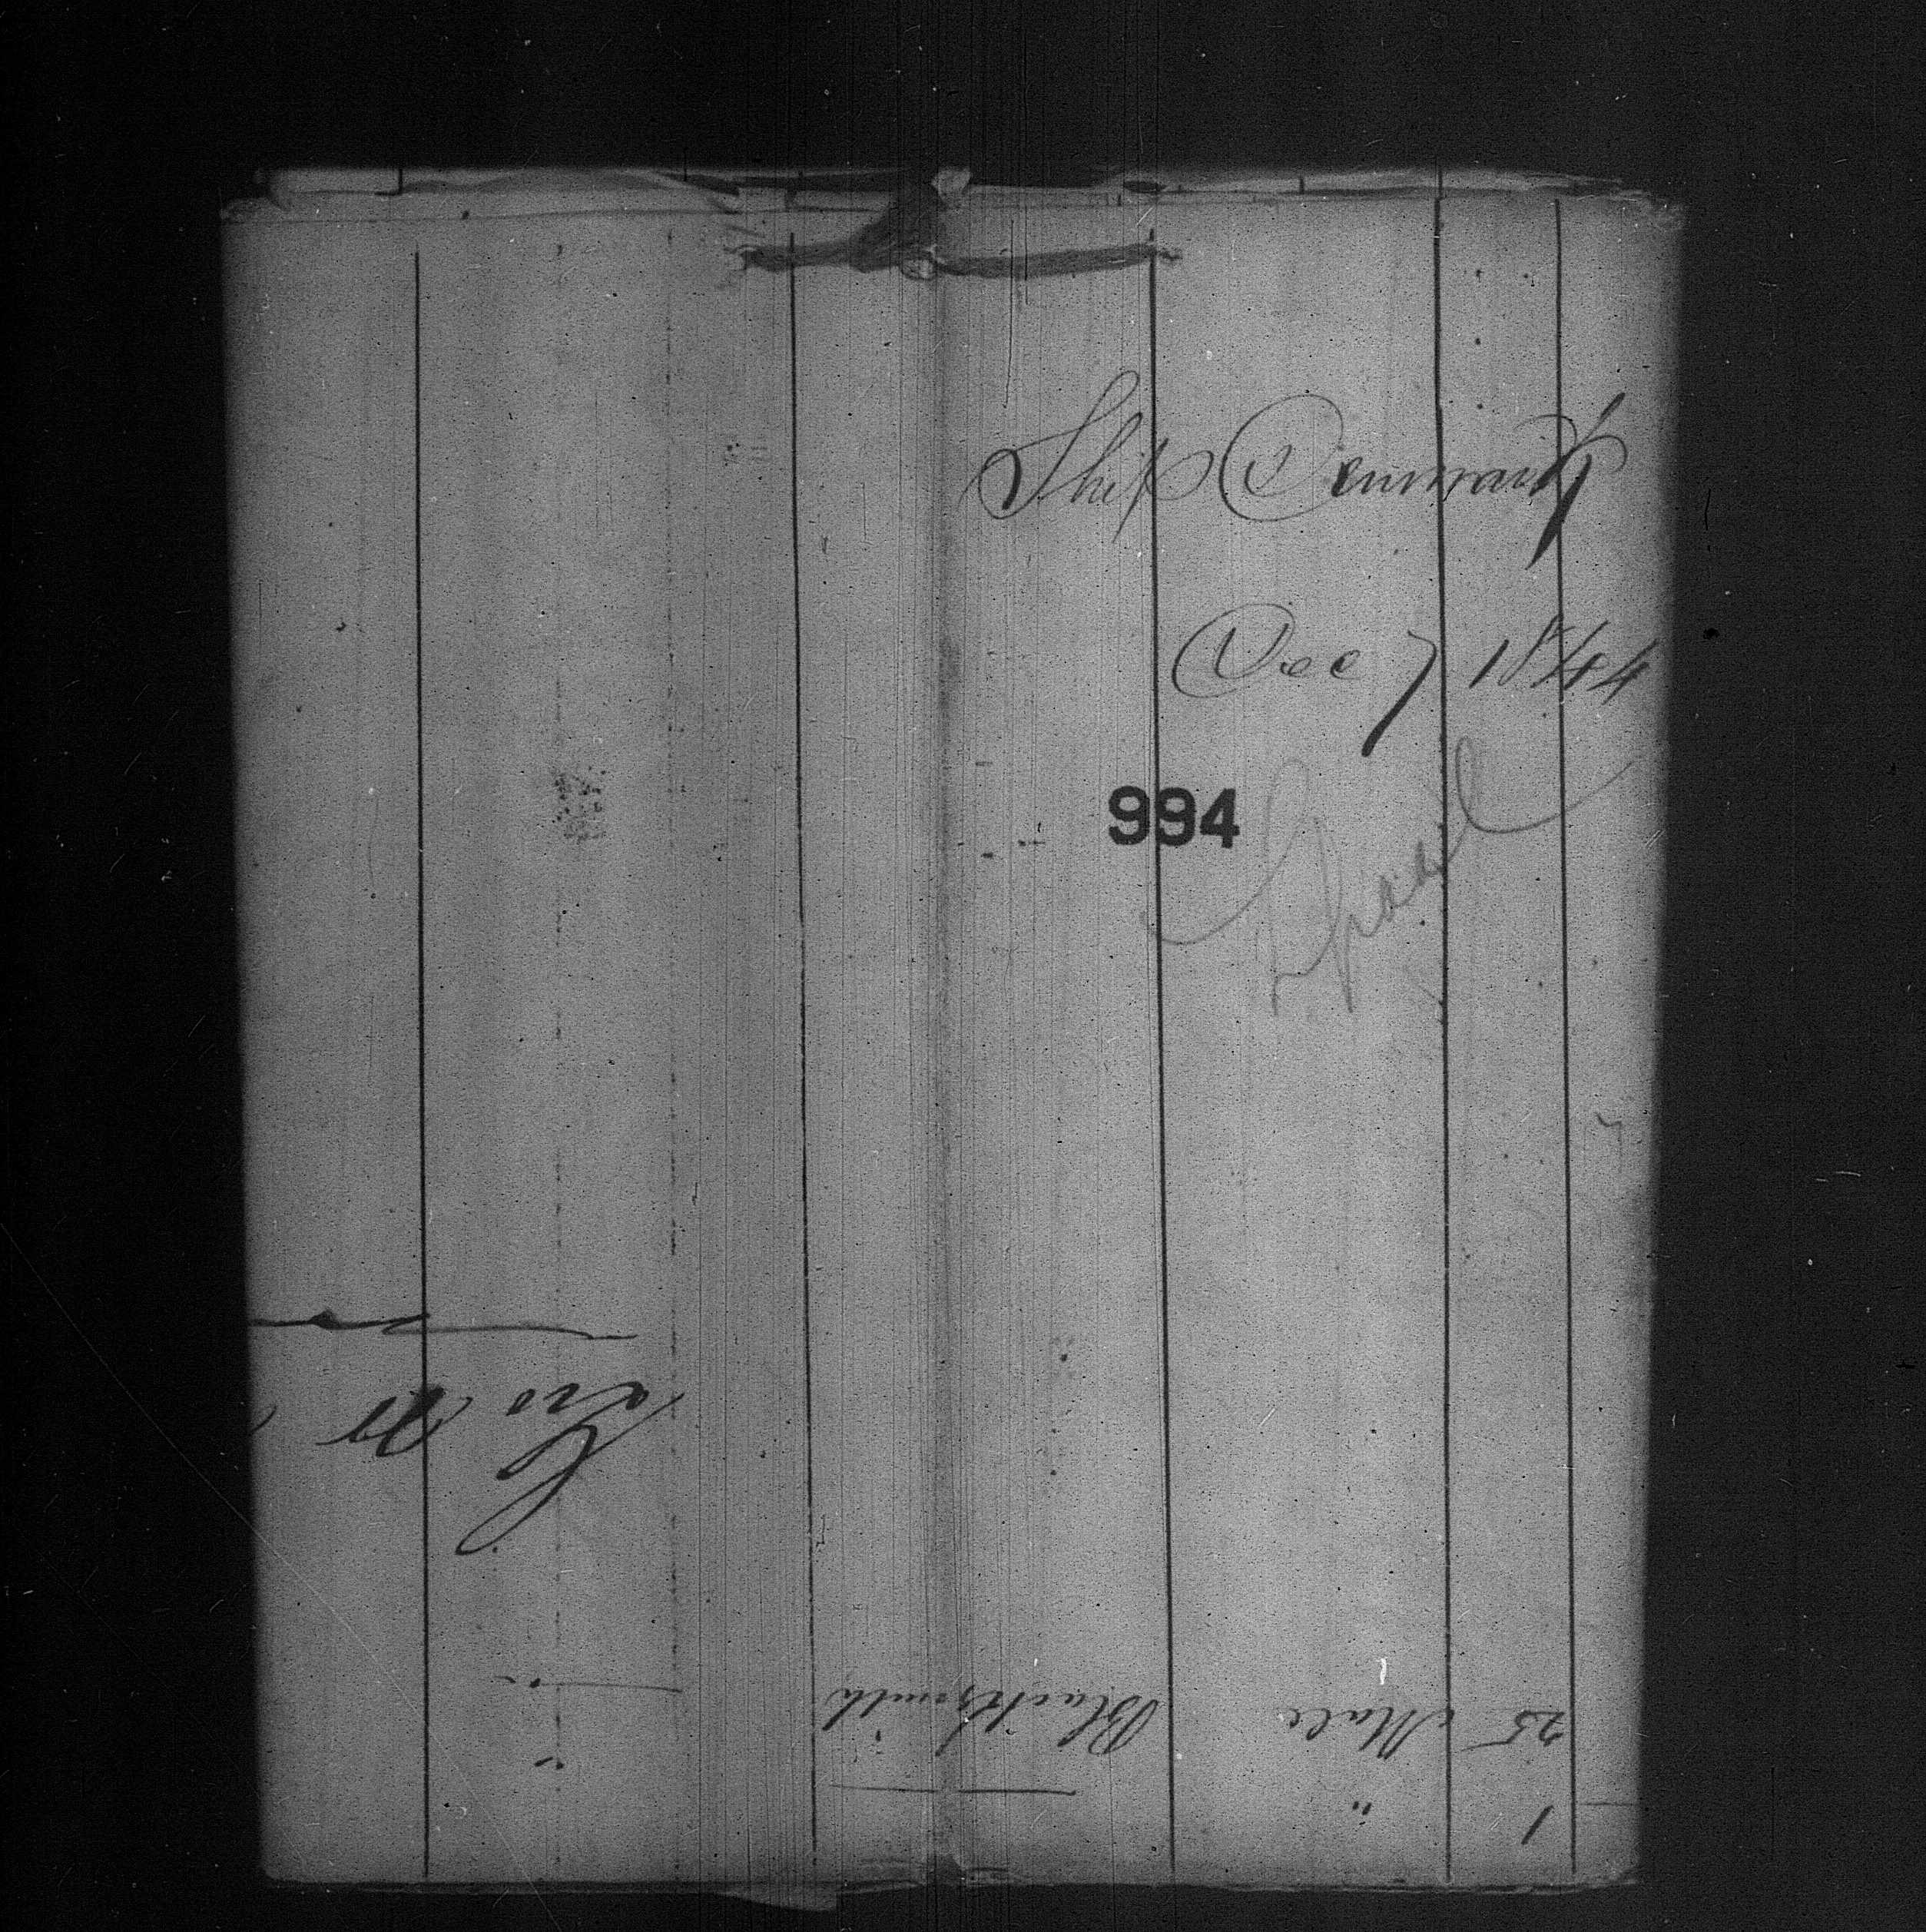 Ship Denmark
Dec 7 1844
994
25 Male Blacksmith
1 "